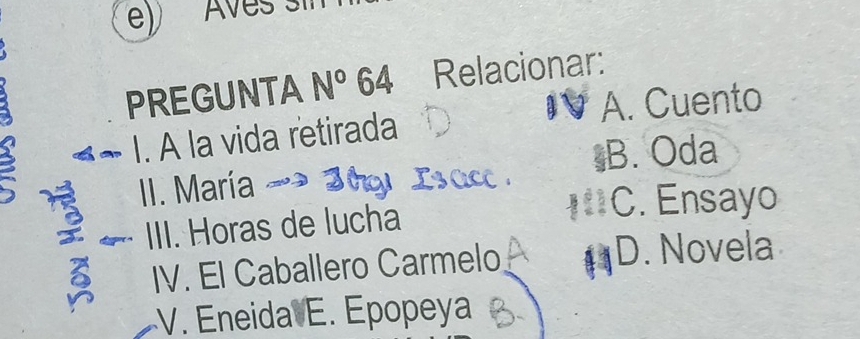 e) Aves sin
PREGUNTA Nº 64 Relacionar:
I. A la vida retirada D
IV A. Cuento
II. María → Jorge Isacc.
B. Oda
III. Horas de lucha
III C. Ensayo
IV. El Caballero Carmelo A
II D. Novela
V. Eneida E. Epopeya B.
José Martí